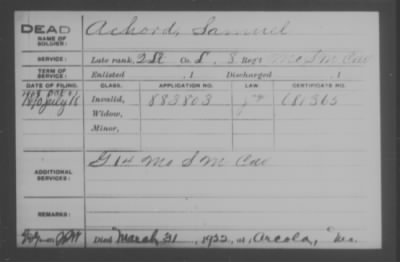 DEAD
NAME OF SOLDIER: Achord, Samuel
SERVICE: Late rank, 2 Lt Co. L, 8 Reg't Mo S M Cav
TERM OF SERVICE: Enlisted , 1 Discharged , 1
DATE OF FILING. CLASS. APPLICATION NO. LAW. CERTIFICATE NO.
July Invalid, 883803 681365
Widow,
Minor,
ADDITIONAL SERVICES: G 14 Mo S M Cav
REMARKS:
Died March 31, 1922, at Arcola, Mo.